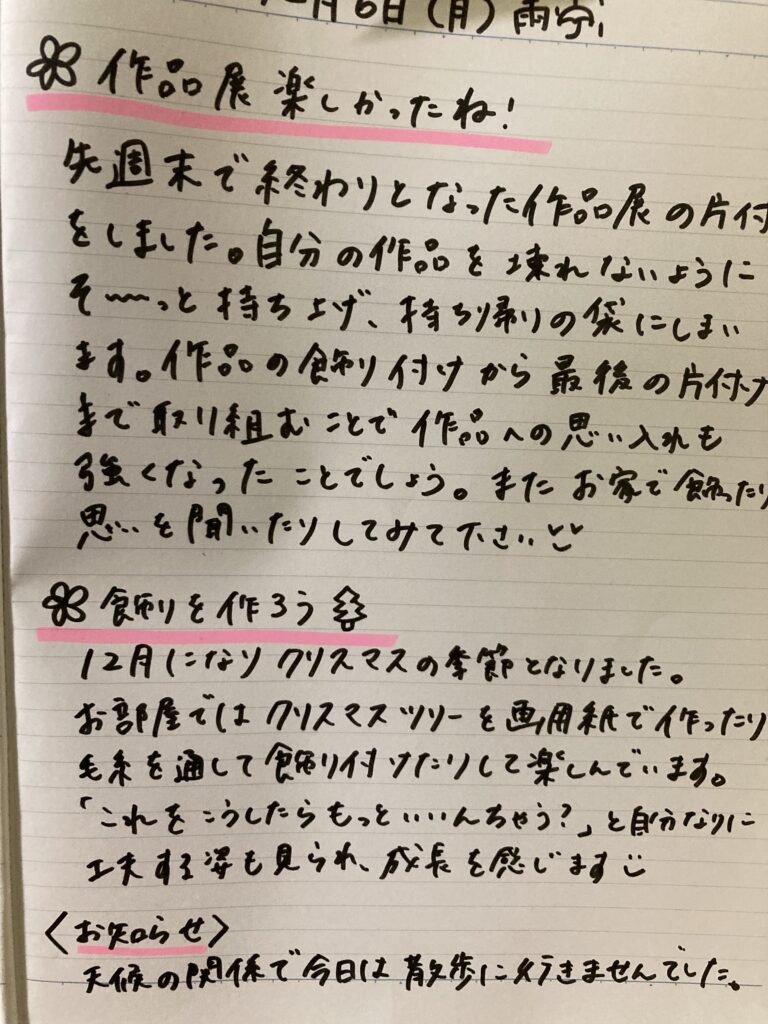 月6日(月)雨
作品展楽しかったね!
先週末で終わりとなった作品展の片付
をしました。自分の作品を壊れないように
そ〜〜っと持ち上げ、持ち帰りの袋にしまい
ます。作品の飾り付けから最後の片付け
まで取り組むことで作品への思い入れも
強くなったことでしょう。またお家で飾ったり
思いを聞いたりしてみて下さい
飾りを作ろう
12月になりクリスマスの季節となりました。
お部屋ではクリスマスツリーを画用紙で作ったり
毛糸を通して飾り付けたりして楽しんでいます。
「これをこうしたらもっといいんちゃう?」と自分なりに
工夫する姿も見られ、成長を感じます
〈お知らせ〉
天候の関係で今日は散歩に行きませんでした。